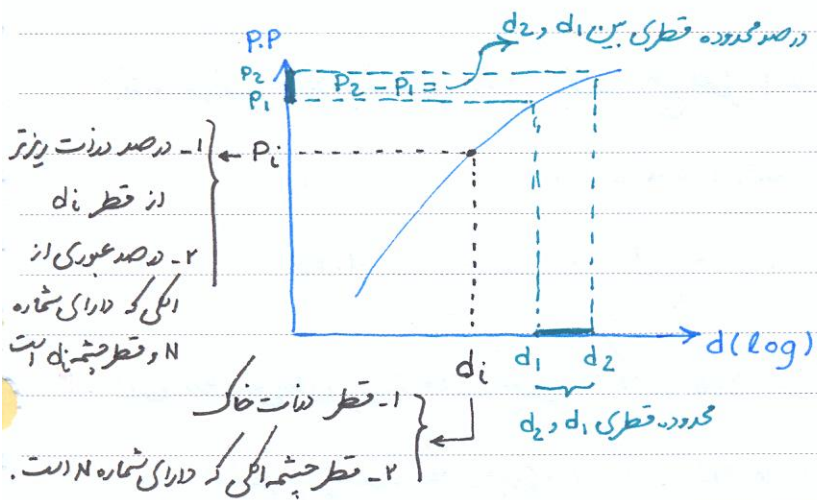 درصد محدوده قطری بین d1 و d2
P.P
P2
P2 - P1 =
P1
Pi
۱- درصد ذرات ریزتر
از قطر di
۲- درصد عبوری از
الکی که دارای شماره
N و قطر چشمه di است
d(log)
di
d1
d2
محدوده قطری d1 و d2
۱- قطر ذرات خاک
۲- قطر چشمه الکی که دارای شماره N است.